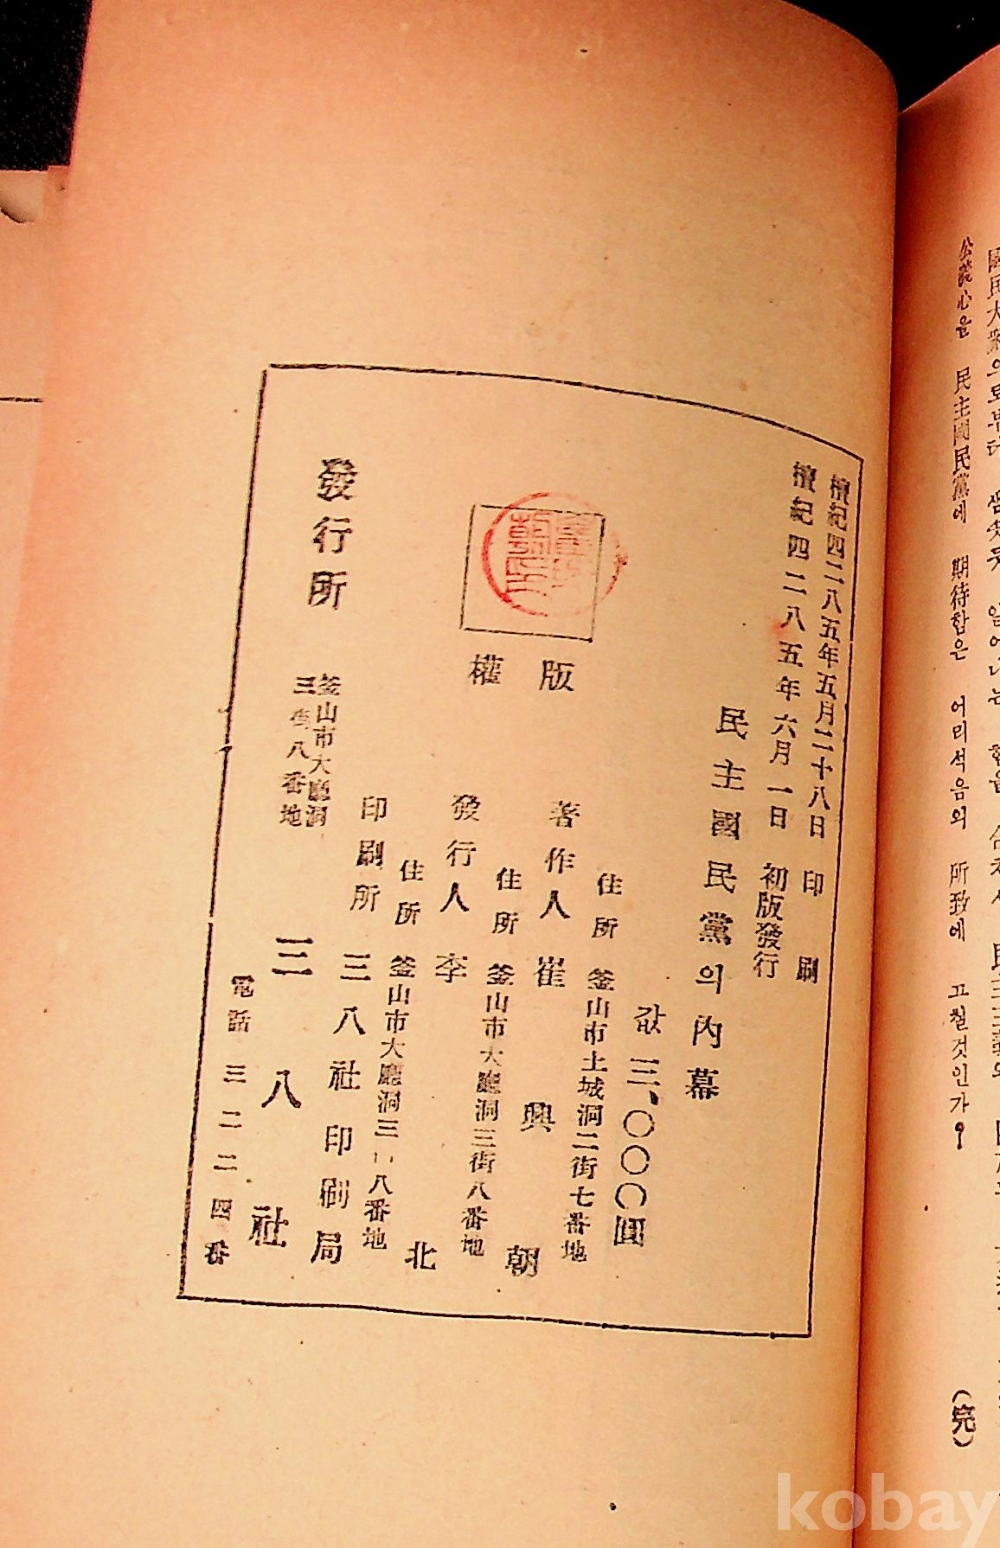 公義心을 民主國民黨에 期待함은 어리석음의 所致에 고칠것인가?
(完)
檀紀四二八五年五月二十八日 印刷
檀紀四二八五年六月一日 初版發行
民主國民黨의內幕
값 三、〇〇〇圓
住所 釜山市土城洞二街七番地
著作人 崔興朝
住所 釜山市大廳洞三街八番地
發行人 李 北
住所 釜山市大廳洞三ノ八番地
印刷所 三八社印刷局
版權
發行所
釜山市大廳洞
三街八番地
三八社
電話 三二二四番
kobay